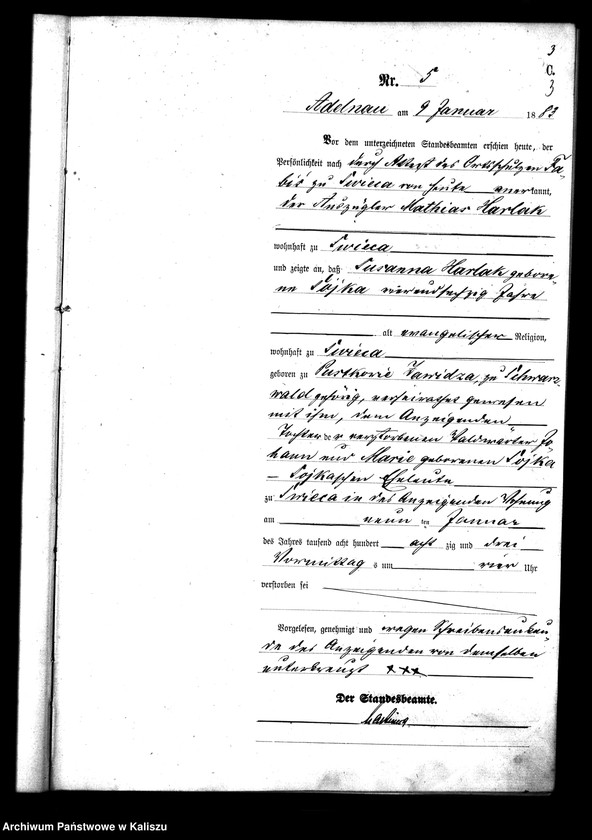 3
C.
3
Nr. 5
Adelnau am 9 Januar 1883
Vor dem unterzeichneten Standesbeamten erschien heute, der
Persönlichkeit nach durch Attest des Ortsschulzen Fa-
bis zu Swieca von heute anerkannt,
der Auszügler Mathias Harlak
wohnhaft zu Swieca
und zeigte an, daß Susanna Harlak gebore-
ne Sojka vierundsechzig Jahre
alt evangelischer Religion,
wohnhaft zu Swieca
geboren zu Zawidza, zu Schwarz-
wald gehörig, verheirathet gewesen
mit ihm, dem Anzeigenden
Tochter der verstorbenen Waldwärter Jo-
hann und Marie geborenen Sojka
– Sojkaschen Eheleute
zu Swieca in des Anzeigenden Wohnung
am neun ten Januar
des Jahres tausend acht hundert acht zig und drei
Vormittag s um vier Uhr
verstorben sei
Vorgelesen, genehmigt und wegen Schreibensunkun-
de des Anzeigenden von demselben
unterkreuzt +++
Der Standesbeamte.
Archiwum Państwowe w Kaliszu